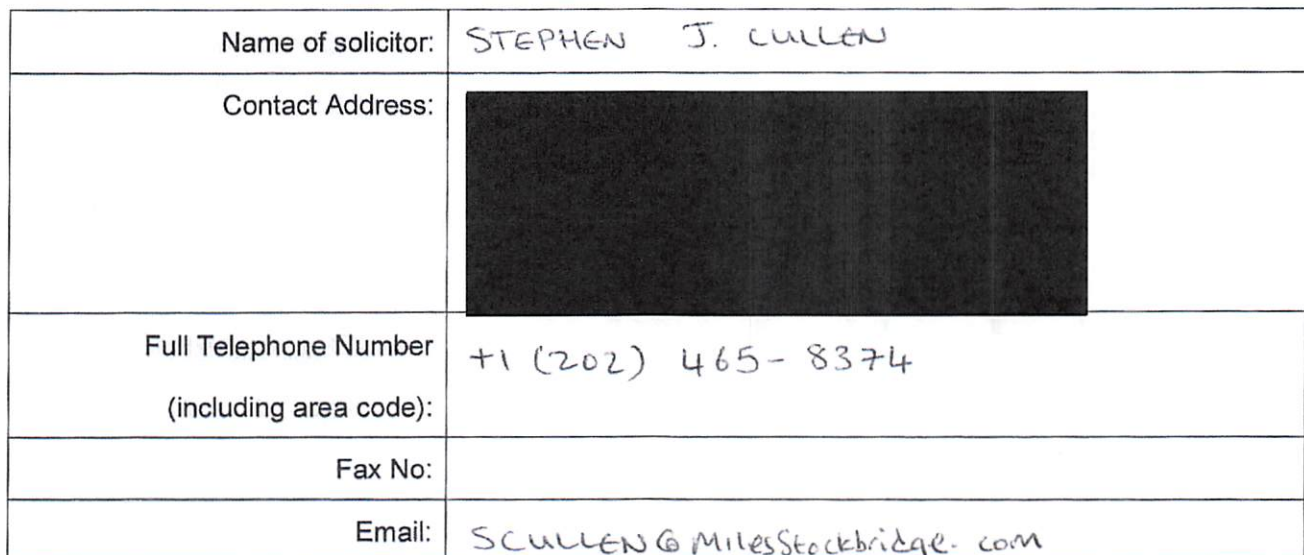 Name of solicitor: STEPHEN J. CULLEN
Contact Address:
Full Telephone Number +1 (202) 465-8374
(including area code):
Fax No:
Email: SCULLEN@MilesStockbridge.com